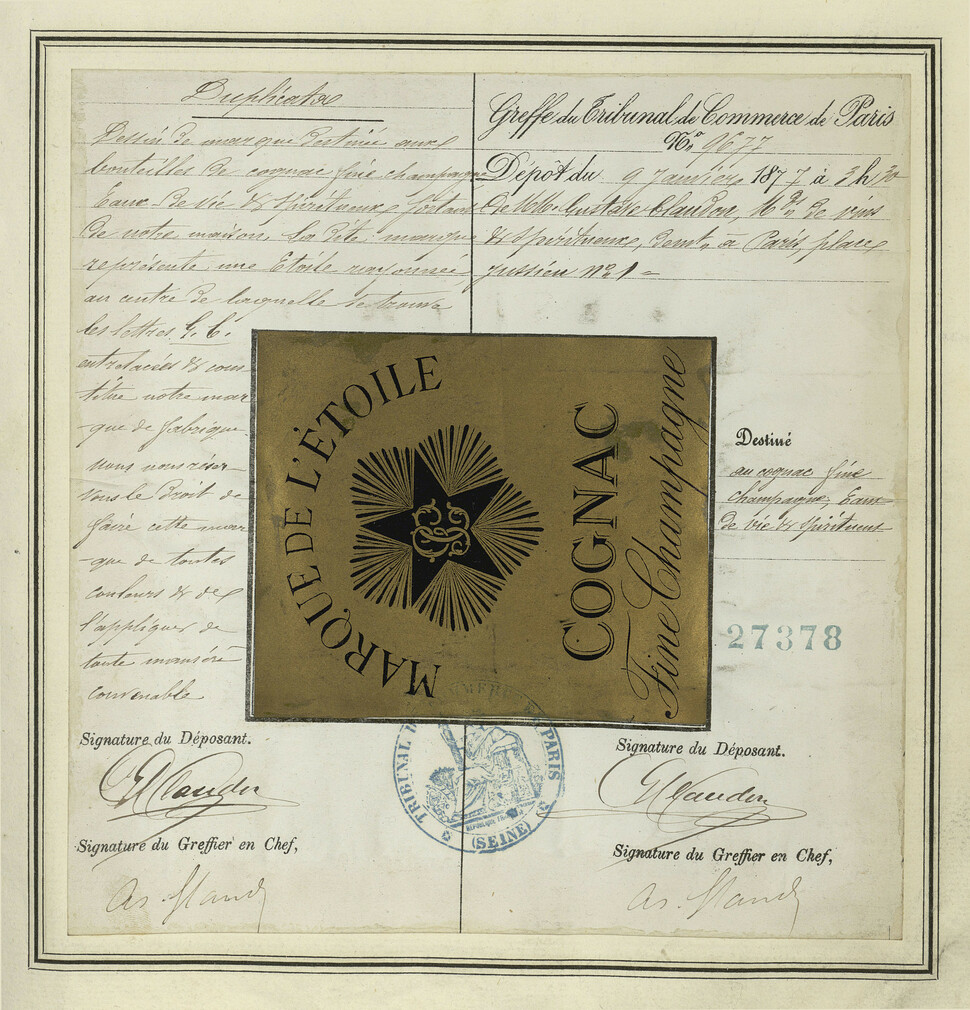 Duplicata
Dessin de marque destinée aux
bouteilles de cognac fine champagne
Eaux de vie & spiritueux sortant
de notre maison. La dite marque
représente une Etoile rayonnée
au centre de laquelle se trouve
les lettres G. C.
entrelacées & cons
titue notre mar
-que de fabrique.
nous nous réser-
vons le droit de
faire cette mar
-que de toutes
couleurs & de
l'appliquer de
toute manière
convenable
Signature du Déposant.
GClaudon
Signature du Greffier en Chef,
Greffe du Tribunal de Commerce de Paris
No 9677
Dépôt du 9 Janvier 1877 à 2h 30
de Mr. Gustave Claudon, Md de vins
& spiritueux, demt à Paris, place
Jussieu no 1 =
MARQUE DE L'ÉTOILE
GC
COGNAC
Fine Champagne
Destiné
au cognac fine
champagne, Eaux
de vie & spiritueux
27378
TRIBUNAL DE COMMERCE DE PARIS
RÉPUBLIQUE FRANÇAISE
(SEINE)
Signature du Déposant.
GClaudon
Signature du Greffier en Chef,